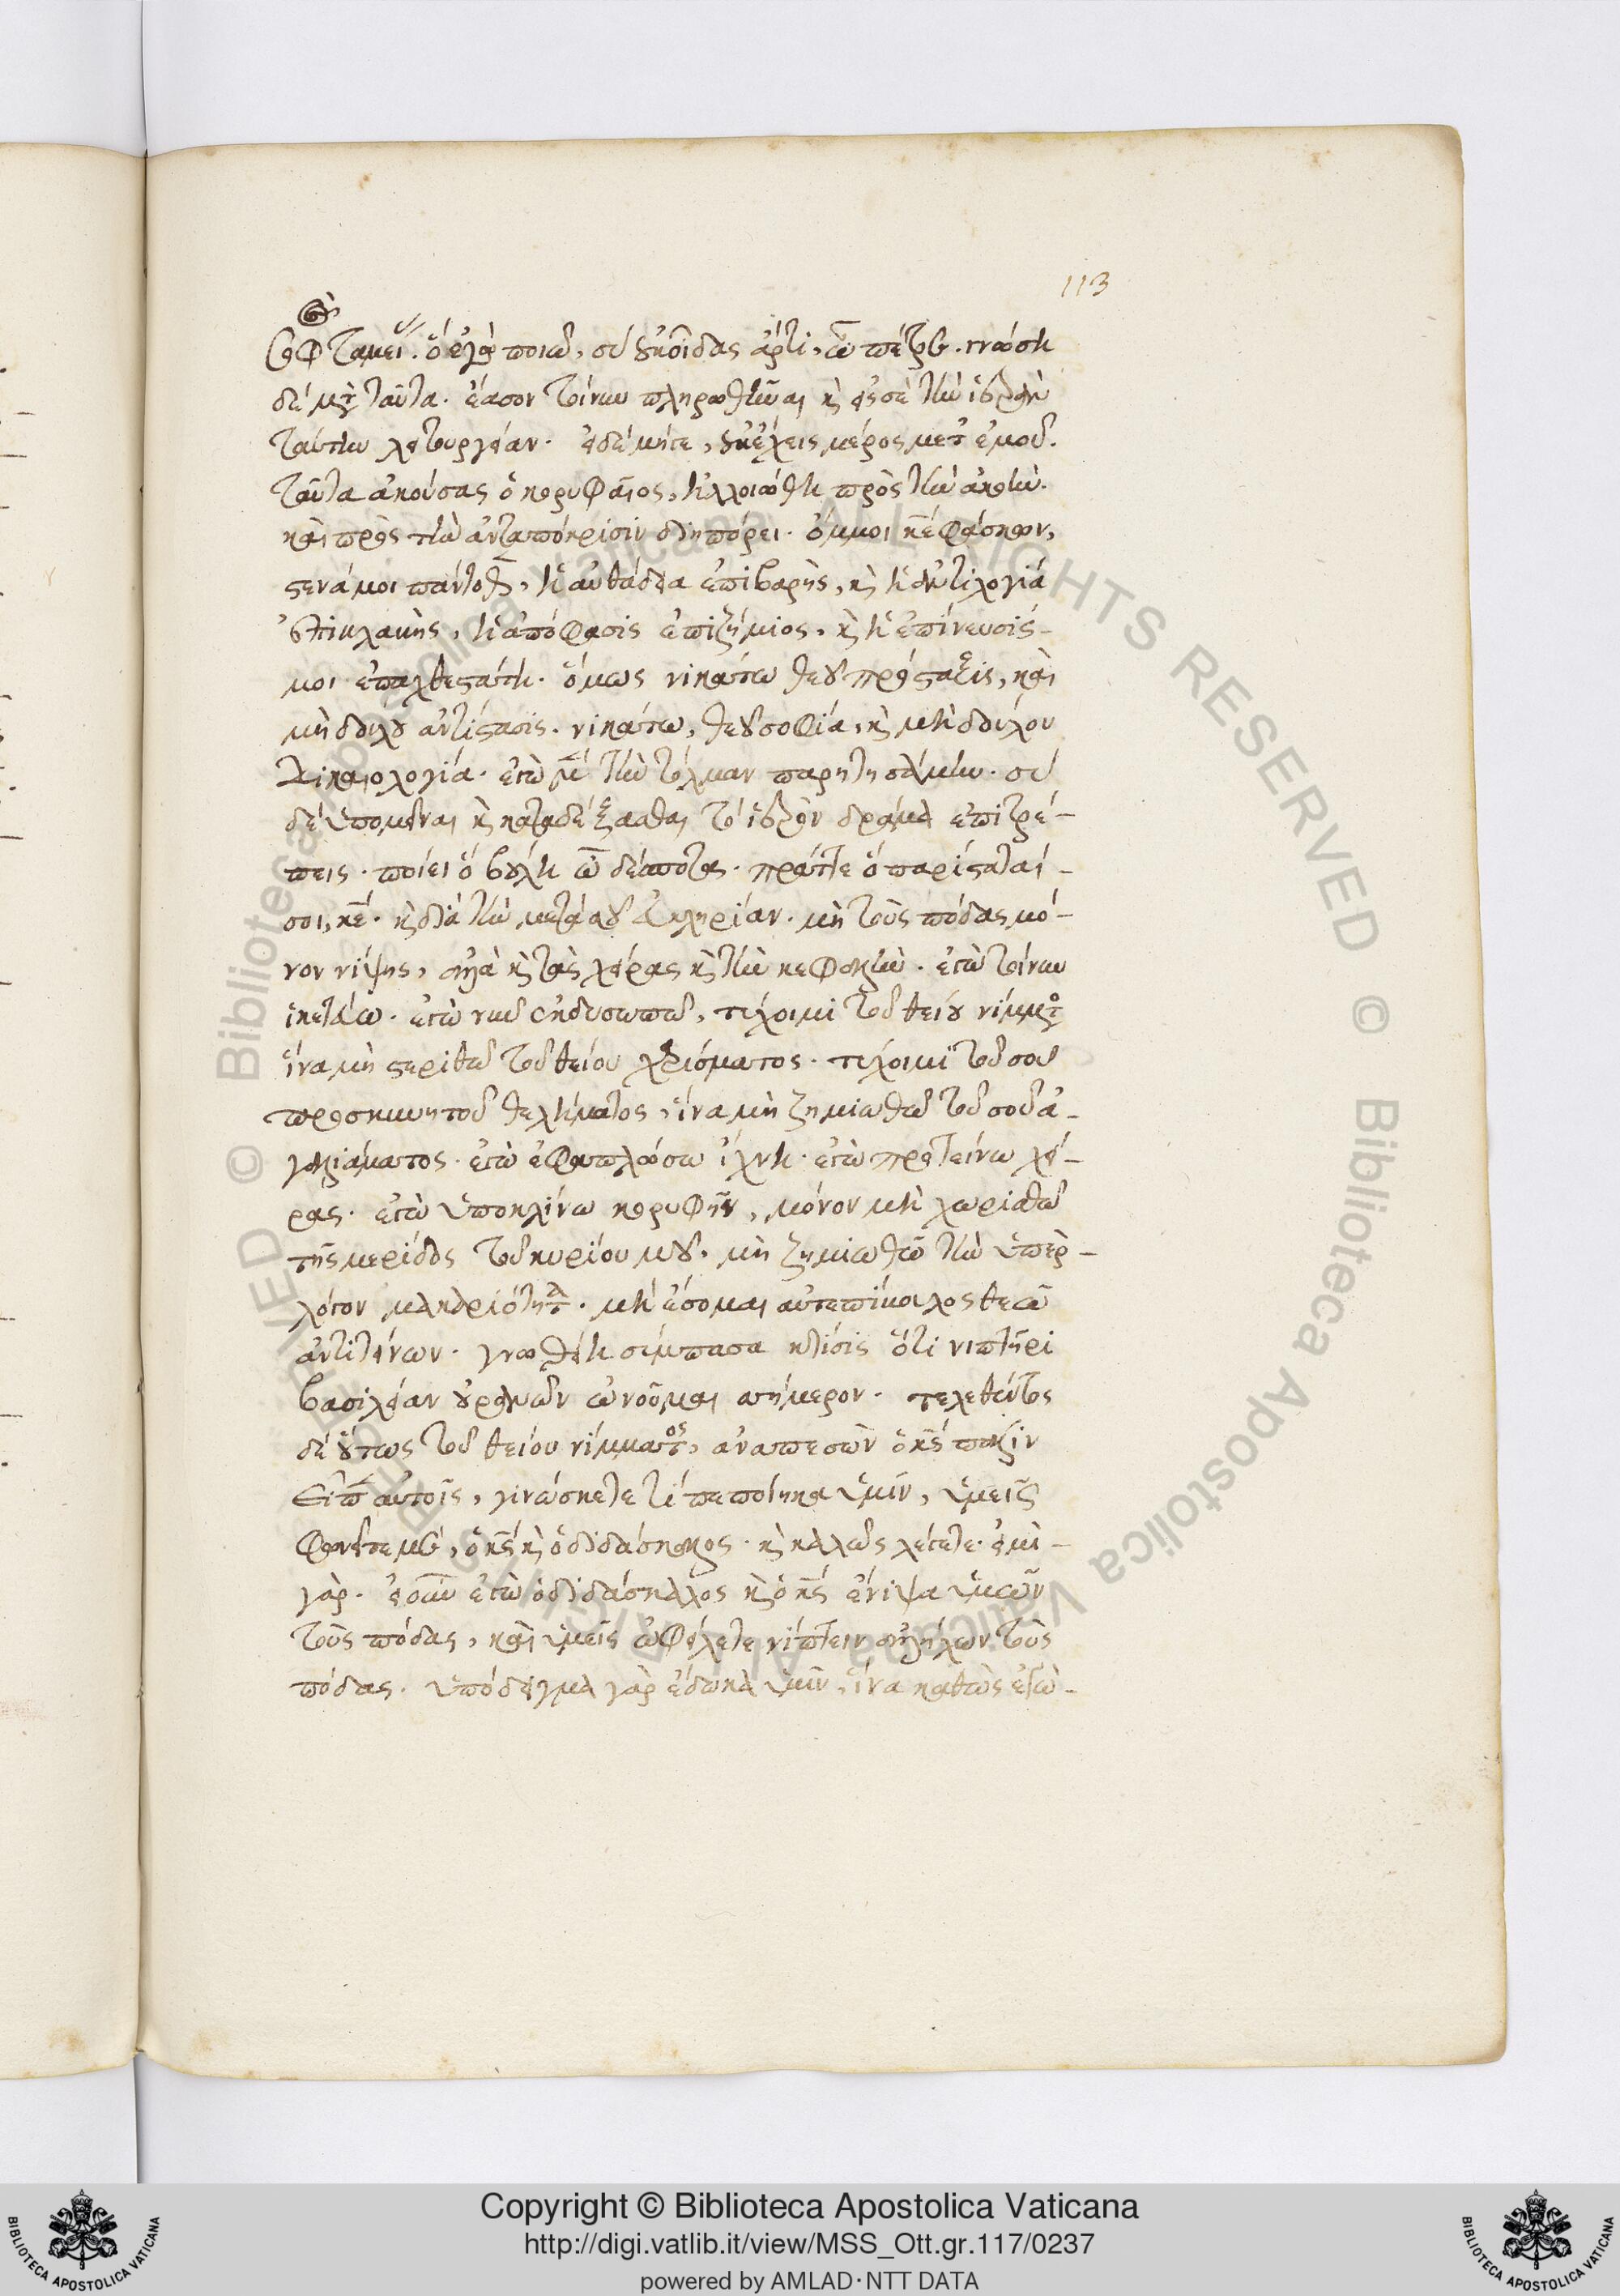 113
ὃ ἐγὼ ποιῶ, σὺ οὐκ οἶδας ἄρτι, ὦ πέτρε. γνώση
δὲ μετὰ ταῦτα. ἔασον τοίνυν πληρωθῆναι καὶ εἰς σὲ τὴν ἱερὰν
ταύτην λειτουργείαν. εἰ δὲ μήτε, οὐκ ἔχεις μέρος μετ' ἐμοῦ.
ταῦτα ἀκούσας ὁ κορυφαῖος, ἠλλοιώθη πρὸς τὴν ἀκοήν.
καὶ πρὸς τὴν ἀνταπόκρισιν διηπόρει. οἴμμοι κὲ φάσκων,
στενά μοι πάντοθεν, ἡ αὐθάδεια ἐπιβαρὴς, καὶ ἡ ἀντιλογία
ἐπικλαπὴς, ἡ ἀπόφασις ἐπιζήμιος, καὶ ἡ ἐπίνευσίς
μοι ἐπαχθεστάτη. ὅμως νικάτω θεοῦ πρόσταξις, καὶ
μὴ δούλου ἀντίστασις. νικάτω, θεοῦ σοφία, καὶ μὴ δούλου
δικαιολογία. ἐγὼ μὲν τὴν τόλμαν παρητησάμην. σὺ
δὲ ὑπομεῖναι καὶ καταδέξασθαι τὸ ἱερὸν δράμα ἐπιτρέ-
πεις. ποίει ὃ βούλη ὦ δέσποτα. πράττε ὃ παρίσταταί
σοι, κὲ. μὴ τοὺς πόδας μό-
νον νίψης, ἀλλὰ καὶ τὰς χεῖρας καὶ τὴν κεφαλήν. ἐγὼ τοίνυν
ἱκετεύω. ἐγὼ νῦν δυσωπῶ, τύχοιμι τοῦ θείου νίμματος
ἵνα μὴ στερηθῶ τοῦ θείου χρίσματος. τύχοιμι τοῦ σοῦ
προσκυνητοῦ θελήματος, ἵνα μὴ ζημιωθῶ τοῦ σοῦ ἀ-
γαλλιάματος. ἐγὼ ἐφαπλώσω ἴχνη. ἐγὼ προτείνω χεῖ-
ρας. ἐγὼ ὑποκλίνω κορυφὴν, μόνον μὴ χωρισθῶ
τῆς μερίδος τοῦ κυρίου μου. μὴ ζημιωθῶ τὴν ὑπέρ-
λογον μακαριότητα. μὴ ἔσομαι θεῶ
ἀντιτείνων. γνωσθήτη σύμπασα κτίσις ὅτι νιπτῆρι
βασιλείαν οὐρανῶν ὠνοῦμαι σήμερον. τελεσθέντος
δὲ οὕτως τοῦ θείου νίμματος, ἀναπεσὼν ὁ κς πάλιν
εἶπεν αὐτοῖς, γινώσκετε τί πεποίηκα ὑμῖν, ὑμεῖς
φωνεῖτέ με, ὁ κς καὶ ὁ διδάσκαλος. καὶ καλῶς λέγετε. εἰμὶ
γάρ. εἰ οὖν ἐγὼ ὁ διδάσκαλος καὶ ὁ κς ἔνιψα ὑμῶν
τοὺς πόδας, καὶ ὑμεῖς ὠφείλετε νίπτειν ἀλλήλων τοὺς
πόδας. ὑπόδειγμα γὰρ ἔδωκα ὑμῖν, ἵνα καθὼς ἐγὼ
Copyright © Biblioteca Apostolica Vaticana
http://digi.vatlib.it/view/MSS_Ott.gr.117/0237
powered by AMLAD·NTT DATA